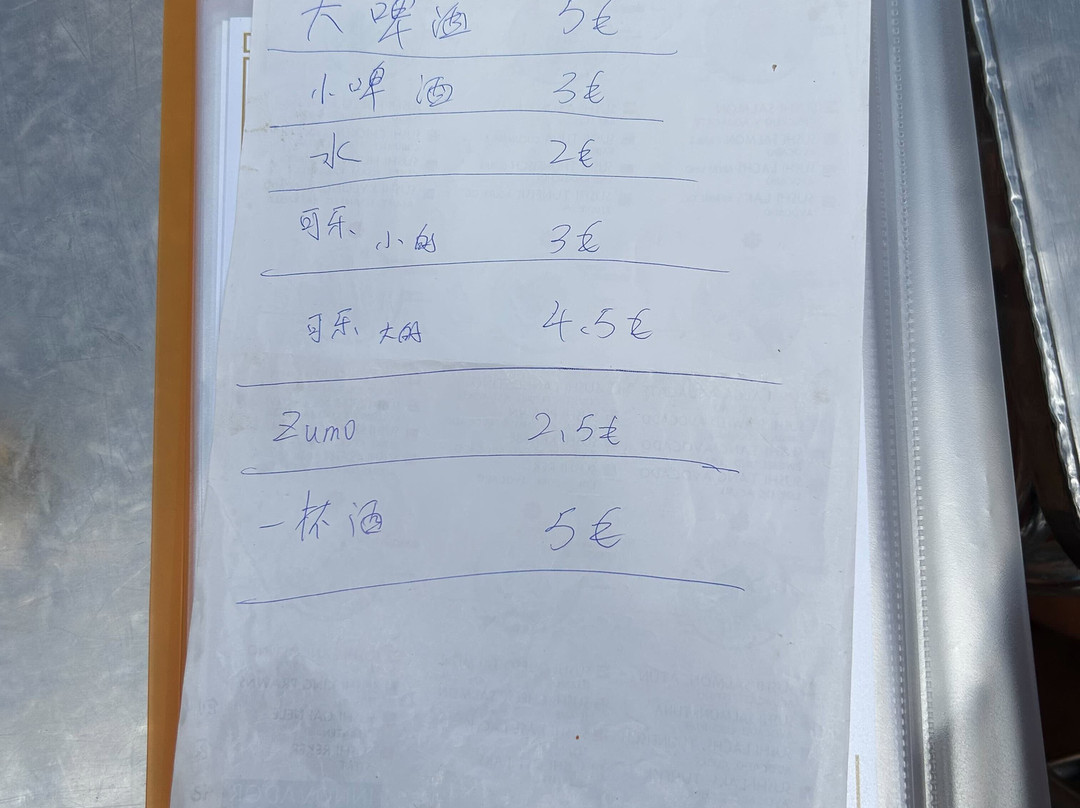 大啤酒 5€
小啤酒 3€
水 2€
可乐 小的 3€
可乐 大的 4.5€
Zumo 2,5€
一杯酒 5€